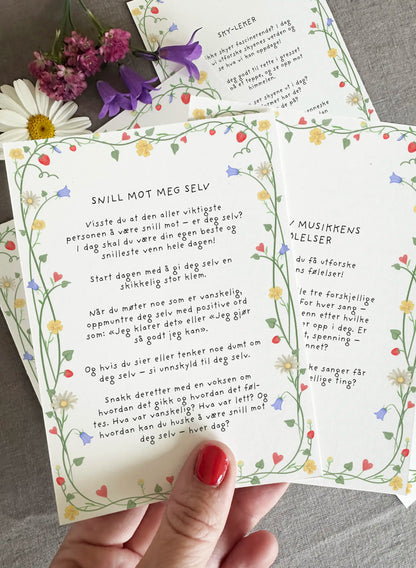 SKY-LEKER
ikke skyer fascinerende? I dag
utforske skyenes verden og
se hva vi kan oppdage!
deg til rette i gresset
på et teppe, og se opp mot
himmelen!
et skyene ut?
mer har de?
de på?
menneske
SNILL MOT MEG SELV
Visste du at den aller viktigste
personen å være snill mot – er deg selv?
I dag skal du være din egen beste og
snilleste venn hele dagen!
Start dagen med å gi deg selv en
skikkelig stor klem.
Når du møter noe som er vanskelig,
oppmuntre deg selv med positive ord
som: «Jeg klarer det» eller «Jeg gjør
så godt jeg kan».
Og hvis du sier eller tenker noe dumt om
deg selv – si unnskyld til deg selv.
Snakk deretter med en voksen om
hvordan det gikk og hvordan det føl-
tes. Hva var vanskelig? Hva var lett? Og
hvordan kan du huske å være snill mot
deg selv – hver dag?
MUSIKKENS
ØLELSER
du få utforske
ns følelser!
le tre forskjellige
For hver sang –
enten etter hvilke
er opp i deg. Er
t, spenning –
annet?
ke sanger får
ellige ting?